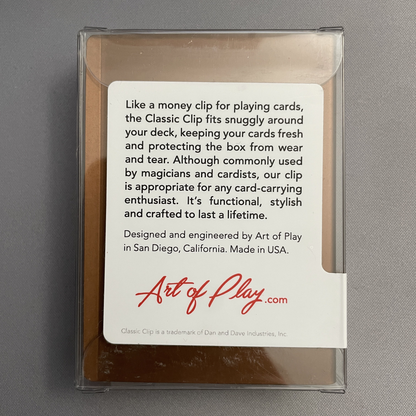 Like a money clip for playing cards,
the Classic Clip fits snuggly around
your deck, keeping your cards fresh
and protecting the box from wear
and tear. Although commonly used
by magicians and cardists, our clip
is appropriate for any card-carrying
enthusiast. It's functional, stylish
and crafted to last a lifetime.
Designed and engineered by Art of Play
in San Diego, California. Made in USA.
Art of Play.com
Classic Clip is a trademark of Dan and Dave Industries, Inc.